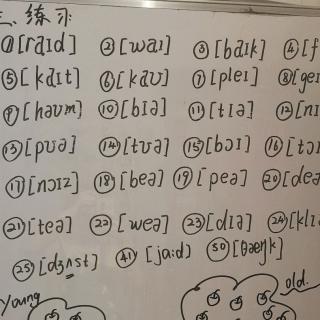 三、练习
① [raɪd] ② [waɪ] ③ [baɪk] ④ [f
⑤ [kaɪt] ⑥ [kaʊ] ⑦ [pleɪ] ⑧ [geɪ
⑨ [haʊm] ⑩ [bɪə] ⑪ [tɪə] ⑫ [nɪ
⑬ [pʊə] ⑭ [tʊə] ⑮ [bɔɪ] ⑯ [tɔɪ
⑰ [nɔɪz] ⑱ [beə] ⑲ [peə] ⑳ [deə
㉑ [teə] ㉒ [weə] ㉓ [dɪə] ㉔ [klɪ
㉕ [dʒʌst] ㊶ [ja:d] ㊿ [θæŋk]
young old.